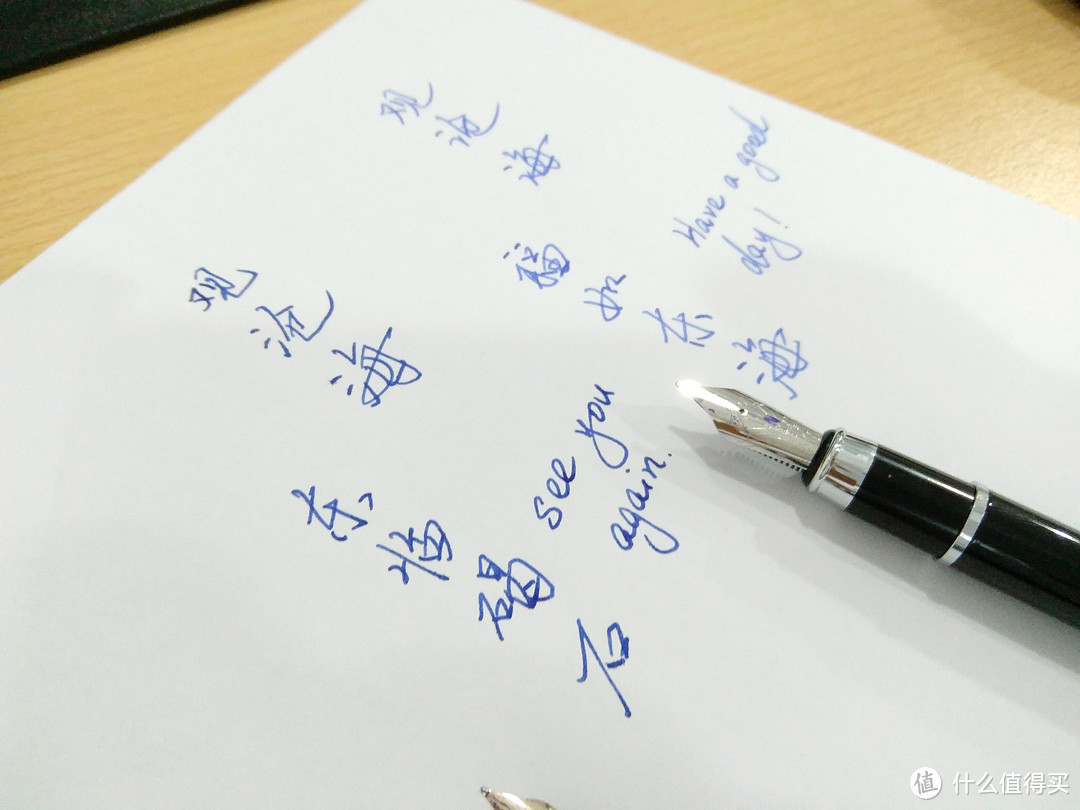 观沧海
福如东海
Have a good
day!
观沧海
东临碣石
see you
again.
值 什么值得买